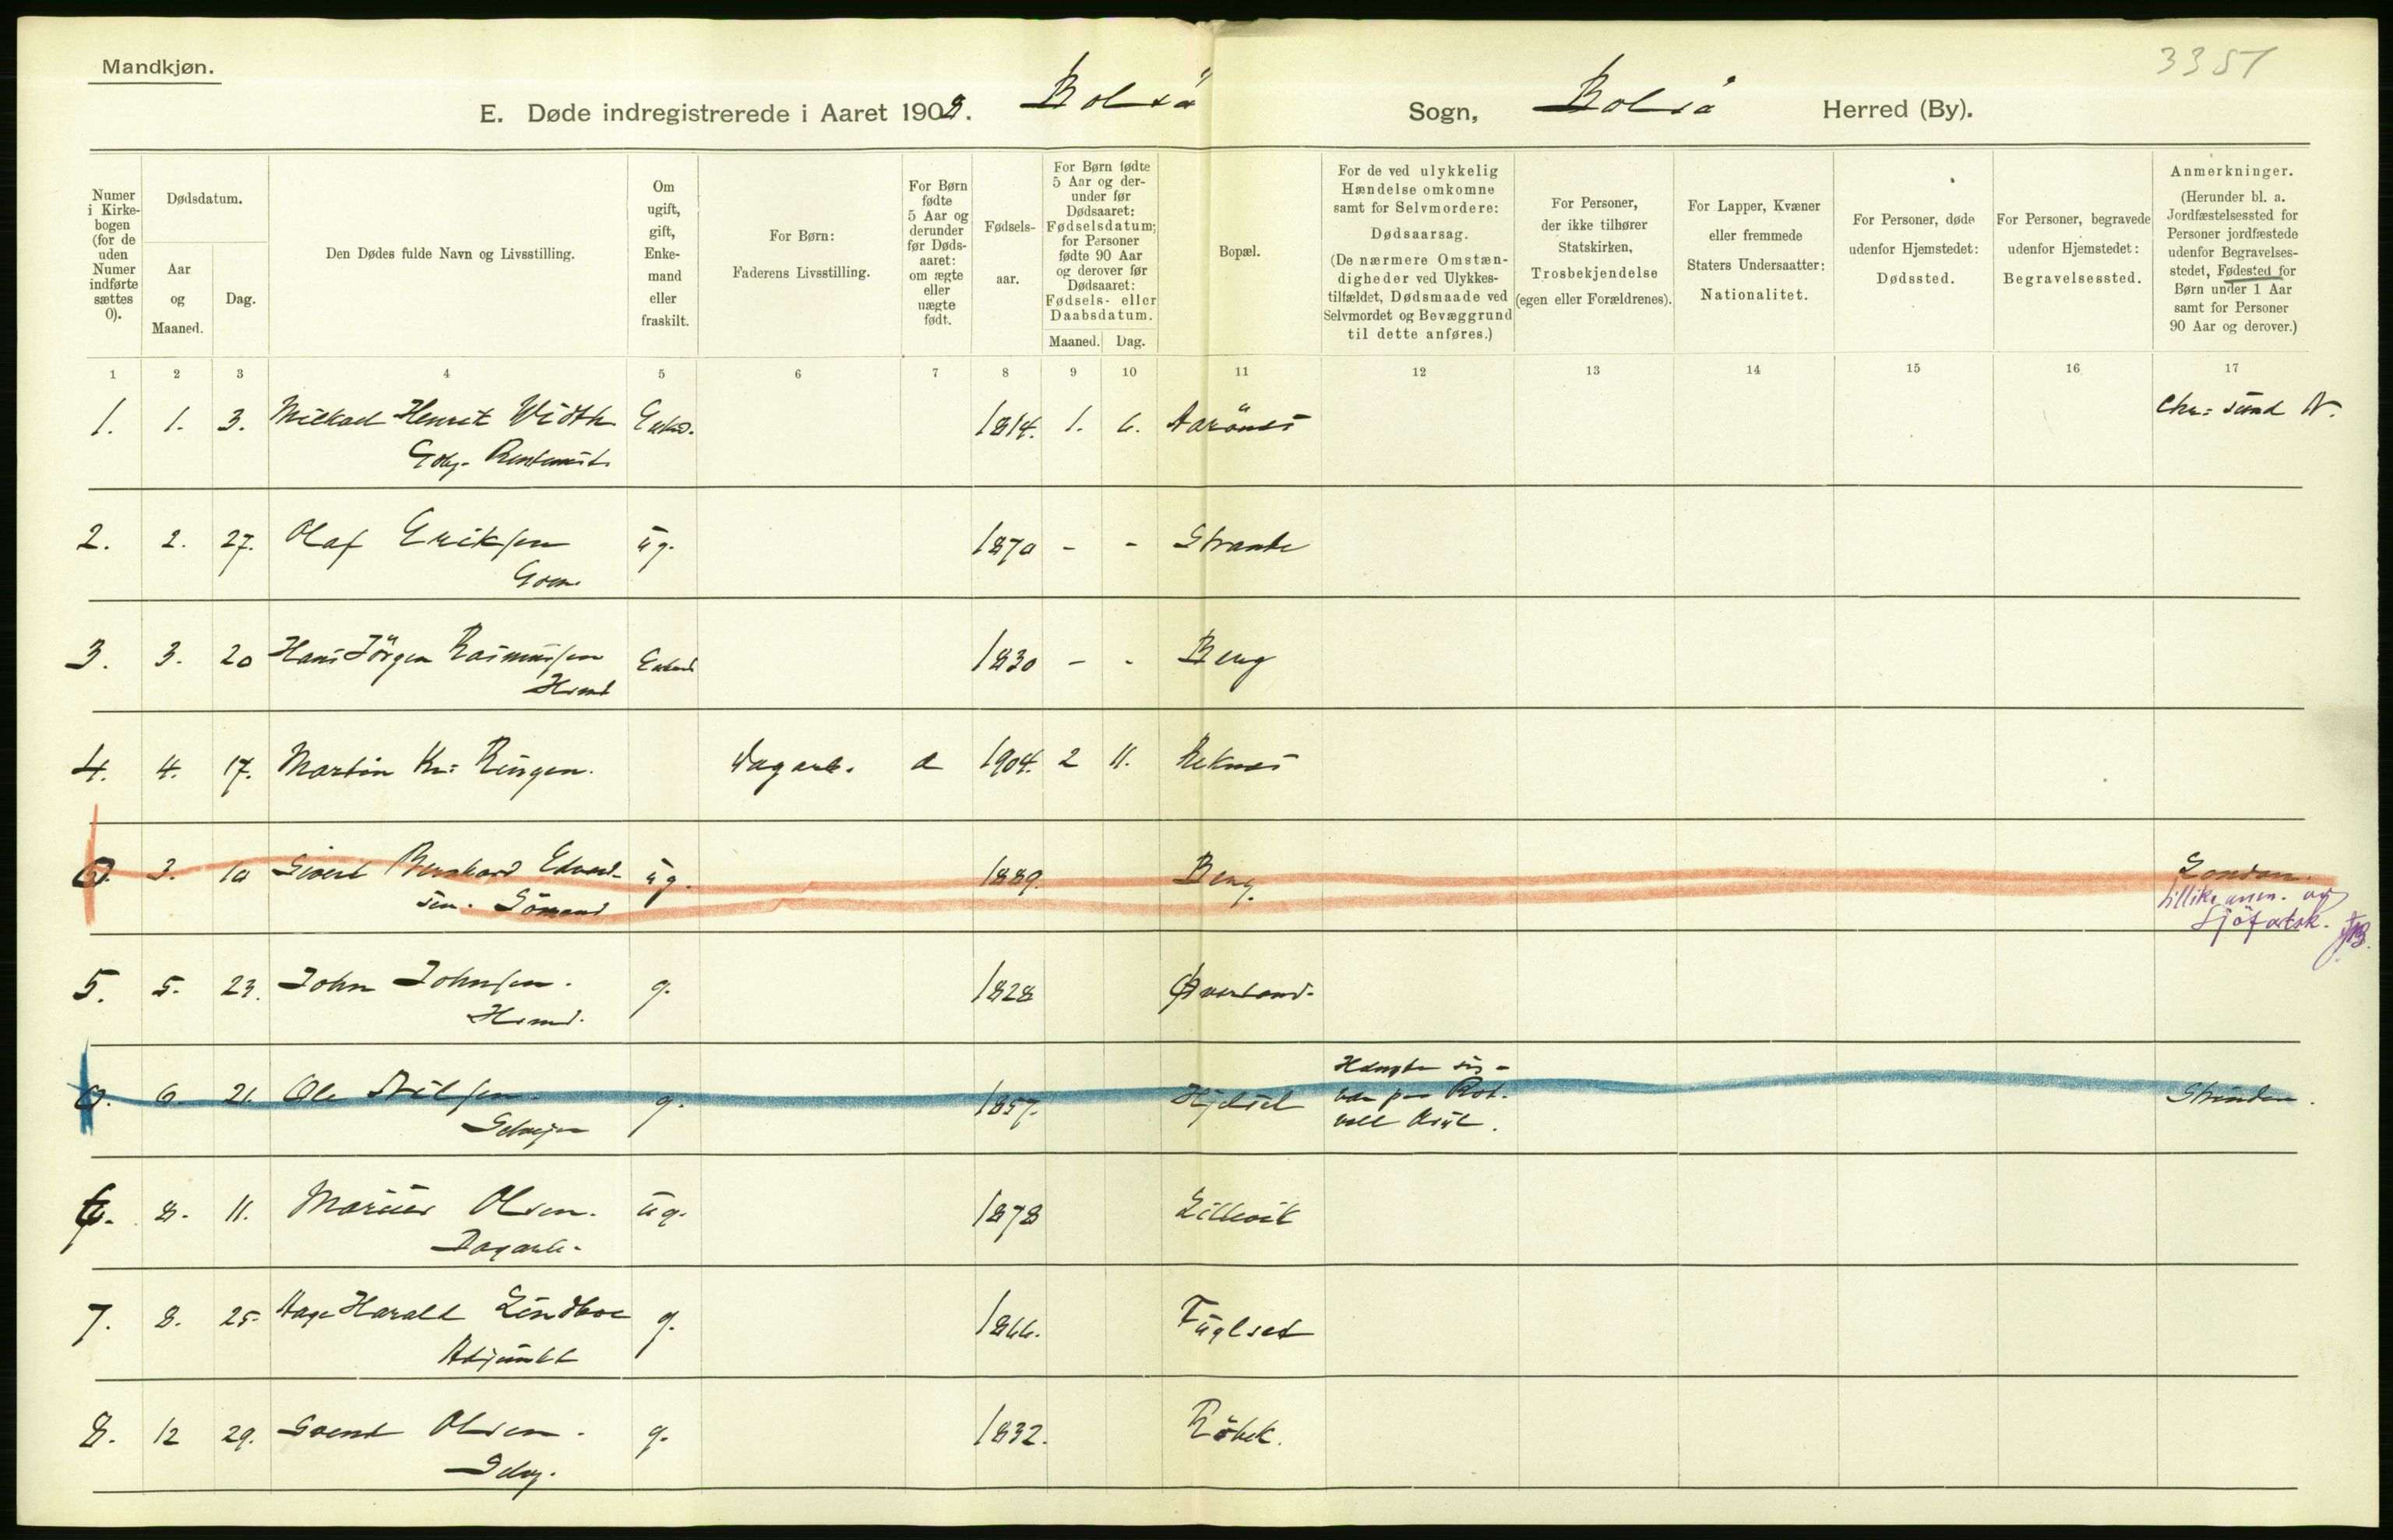 Mandkjøn.
3351
E. Døde indregistrerede i Aaret 1908. Bolsö Sogn, Bolsö Herred (By).
Numer i Kirkebogen (for de uden Numer indførte sættes 0).
Dødsdatum.
Aar og Maaned.
Dag.
Den Dødes fulde Navn og Livsstilling.
Om ugift, gift, Enkemand eller fraskilt.
For Børn: Faderens Livsstilling.
For Børn fødte 5 Aar og derunder før Dødsaaret: om ægte eller uægte født.
Fødselsaar.
For Børn fødte 5 Aar og derunder før Dødsaaret: Fødselsdatum; for Personer fødte 90 Aar og derover før Dødsaaret: Fødsels- eller Daabsdatum.
Maaned. Dag.
Bopæl.
For de ved ulykkelig Hændelse omkomne samt for Selvmordere: Dødsaarsag. (De nærmere Omstændigheder ved Ulykkestilfældet, Dødsmaade ved Selvmordet og Bevæggrund til dette anføres.)
For Personer, der ikke tilhører Statskirken, Trosbekjendelse (egen eller Forældrenes).
For Lapper, Kvæner eller fremmede Staters Undersaatter: Nationalitet.
For Personer, døde udenfor Hjemstedet: Dødssted.
For Personer, begravede udenfor Hjemstedet: Begravelsessted.
Anmerkninger. (Herunder bl. a. Jordfæstelsessted for Personer jordfæstede udenfor Begravelsesstedet, Fødested for Børn under 1 Aar samt for Personer 90 Aar og derover.)
1 2 3 4 5 6 7 8 9 10 11 12 13 14 15 16 17
1. 1. 3. Henrik Width Enkm. 1814. 1. 6. Aarönes Chr: sund N.
2. 2. 27. Olaf Eriksen ug. 1870 - - Strande
3. 3. 20 Hans Jörgen Rasmussen 1830 - - Berg
Hsmd
4. 4. 17. Martin Kr: Ringen. Dagarb. a 1904. 2 11. Reknes
0. 3. 10 Sivert Bernhard Edvard- ug. 1889. Berg. London.
sen. Sömand tillike anm. av
Sjöfartsk.
5. 5. 23. John Johnsen. g. 1828 Øverland.
Hsmd.
0. 6. 21. Ole Nilsen. g. 1857. Hjelset Hængte sig Strinden.
Selvejer paa Rot-
vold Asyl.
6. 8. 11. Marius Olsen. ug. 1878 Lillevik
Dagarb.
7. 8. 25 Aage Harald Lindboe g. 1866. Fuglset
Adjunkt
8. 12 29. Svend Olsen. g. 1832. Röbek.
Selvj.